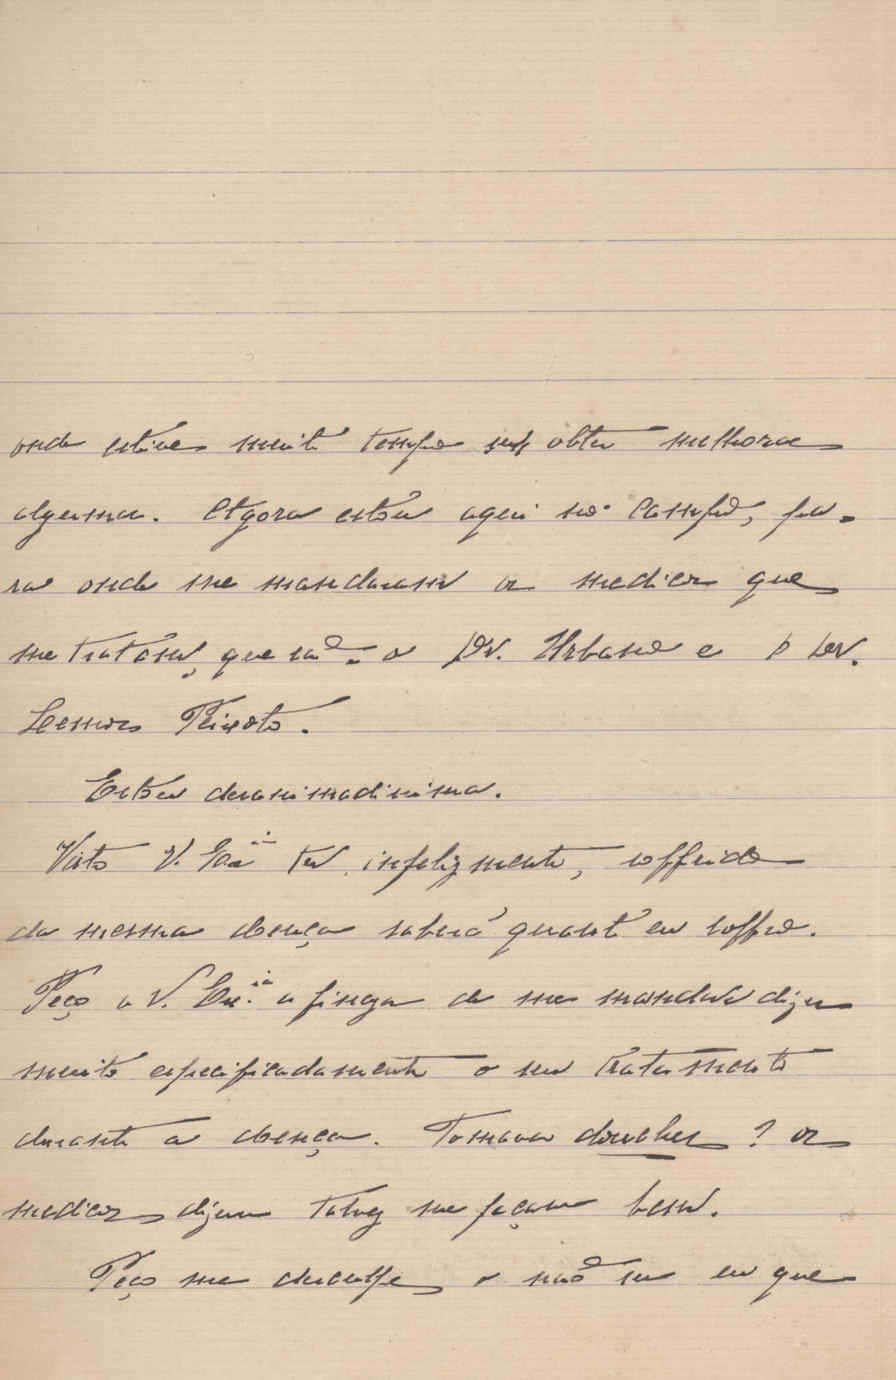 onde estive muito tempo sem obter melhora
alguma. Agora estou aqui no Campo, pa-
ra onde me mandaram os medicos que
me tratam, que são: o Dr. Urbano e o Dr.
Lemos Peixoto.
Estou desanimadissima.
Visto V. Exia ter, infelizmente, soffrido
da mesma doença saberá quanto eu soffro.
Peço a V. Exia a fineza de me mandar dizer
muito especificadamente o seu tratamento
durante a doença. Tomava douches? os
medicos dizem talvez me façam bem.
Peço me desculpe o não ser eu que